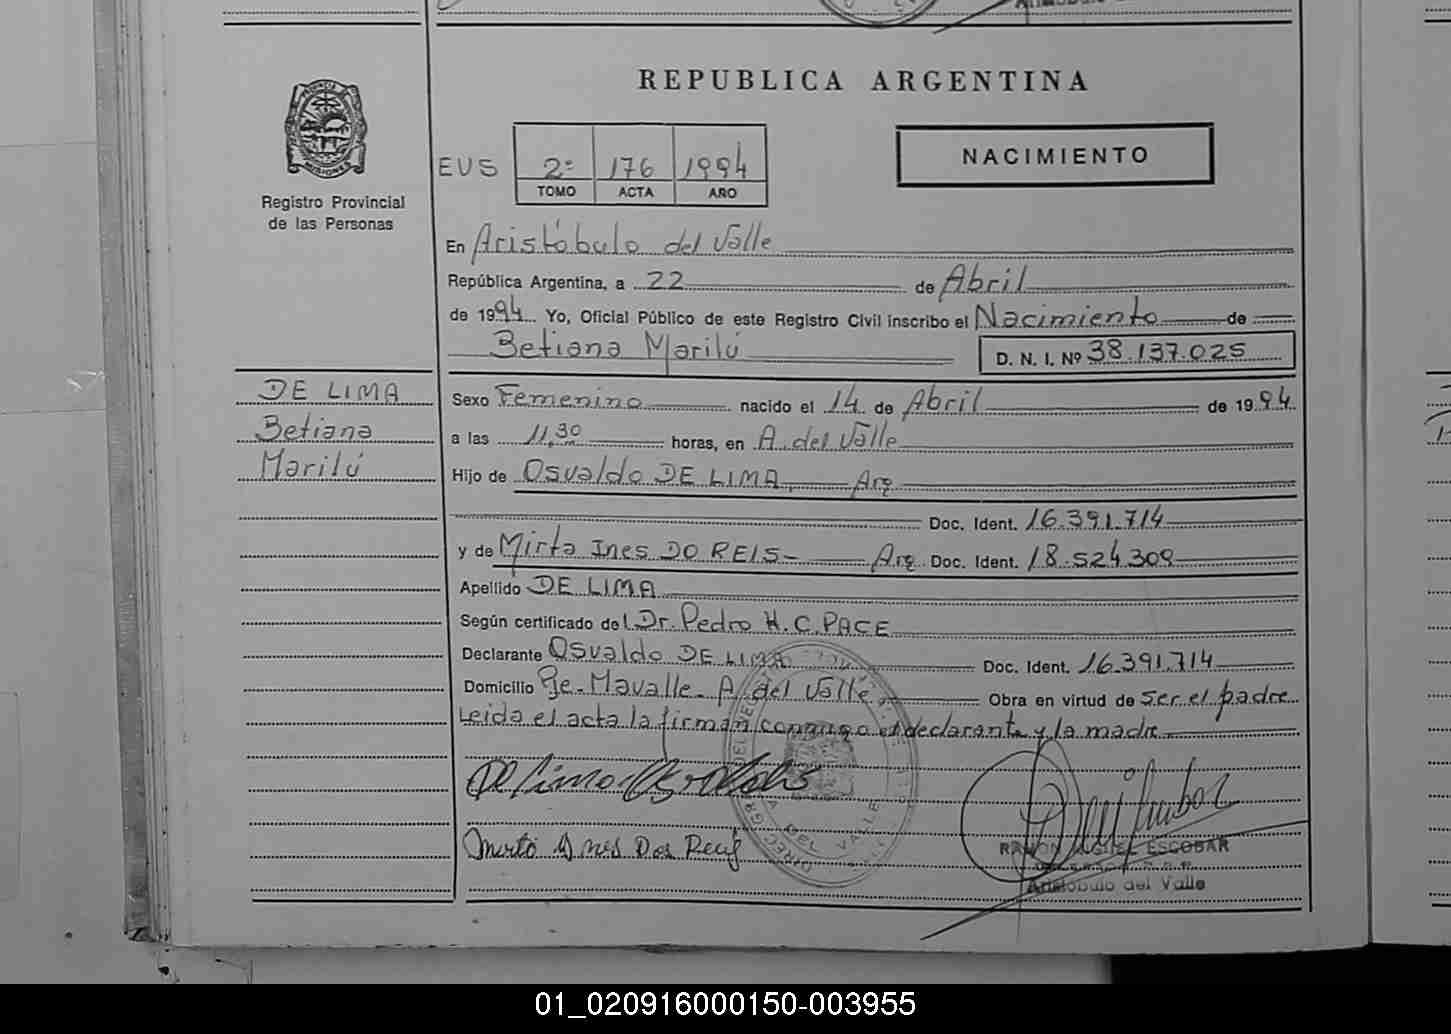 REPUBLICA ARGENTINA
NACIMIENTO
EUS 2º 176 1994
TOMO ACTA AÑO
Registro Provincial
de las Personas
En Aristóbulo del Valle
República Argentina, a 22 de Abril
de 1994 Yo, Oficial Público de este Registro Civil inscribo el Nacimiento de
Betiana Marilú D. N. I. Nº 38.137.025
DE LIMA
Betiana
Marilú
Sexo Femenino nacido el 14 de Abril de 1994
a las 11,30 horas, en A. del Valle
Hijo de Osvaldo DE LIMA, Arg
Doc. Ident. 16.391.714
y de Mirta Ines DO REIS- Arg Doc. Ident. 18.524.309
Apellido DE LIMA
Según certificado del Dr. Pedro H. C. PACE
Declarante Osvaldo DE LIMA Doc. Ident. 16.391.714
Domicilio Pje. Mavalle- A. del Valle Obra en virtud de ser el padre
Leida el acta la firman conmigo el declarante y la madre
De Lima Osvaldo
Mirta Ines Dos Reis
RAMON MIGUEL ESCOBAR
Aristóbulo del Valle
01_020916000150-003955